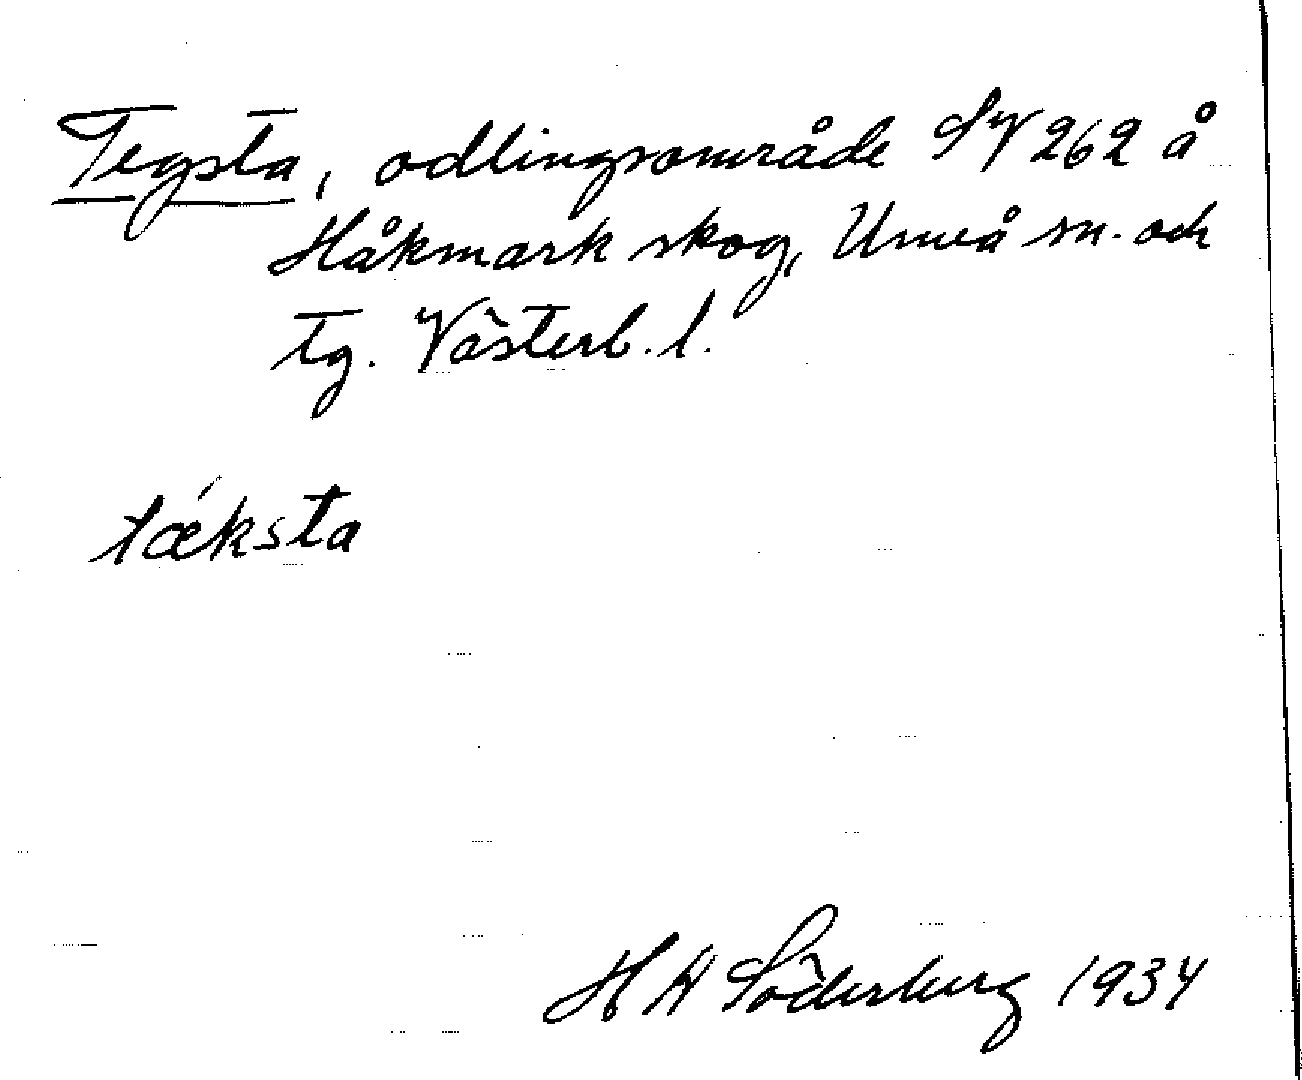 Tegsta, odlingsområde SV 262 å
Håkmark skog, Umeå sn. och
tg. Västerb. l.
tǽksta
H A Söderberg 1934